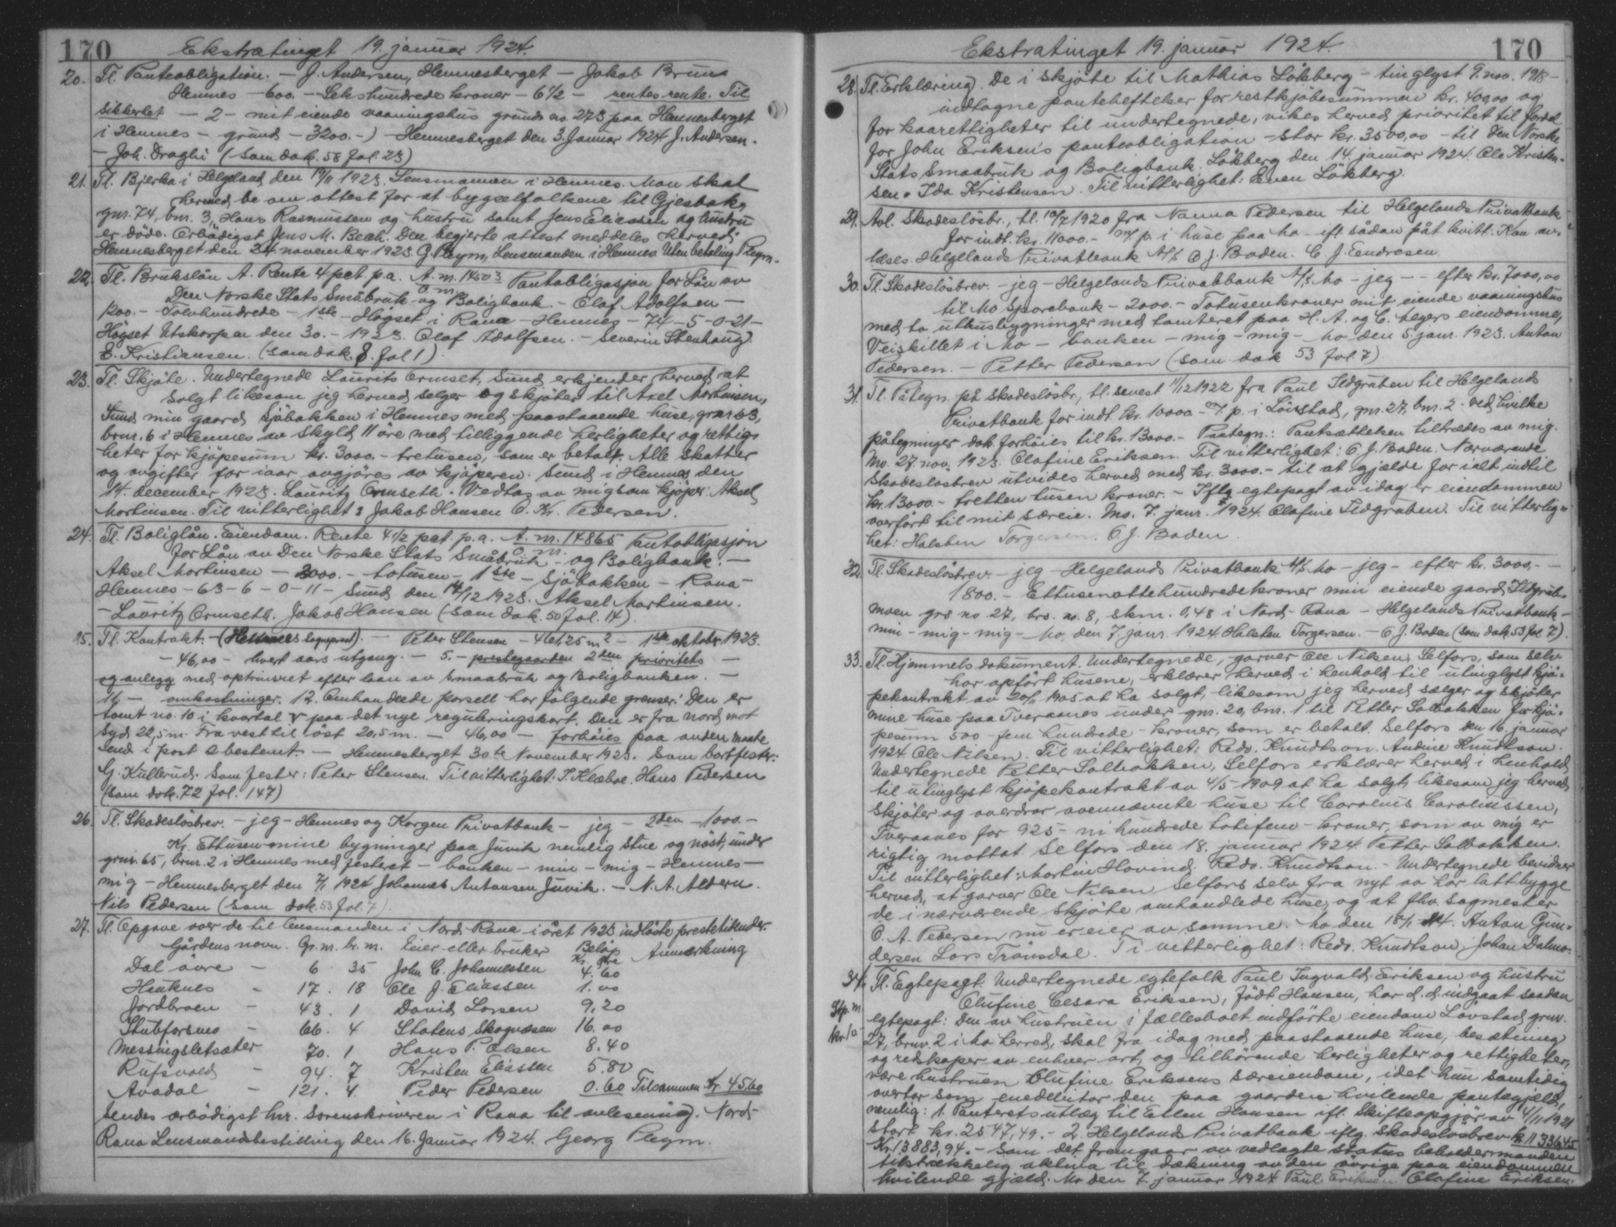 170 Ekstratinget 19. januar 1924.
20. Tl. Panteobligation. - J. Andersen, Hemnesberget - Jakob Bruun
Hemnes - 600 - Sekshundrede kroner - 6½ - rentes rente. Til
sikkerhet - 2 - mit eiende vaaningshus grunds no 273 paa Hemnesberget
i Hemnes - grund - 3200.-) - Hemnesberget den 3. Januar 1924 J. Andersen.
- Joh. Draghi (Som dok. 58 fol. 23)
21. Tl. Bjerka i Helgeland den 19/11 1923. Lensmannen i Hemnes. Man skal
herved be om attest for at bygselfolkene til Gjesbakg
gnr. 74, bnr. 3, Hans Rasmussen og hustru samt Jens Eliassen og hustru
er døde. Ærbødigst Jens M. Bech. Den begjærte attest meddeles herved:
Hemnesberget den 24 november 1923. G. Pleym, Lensmanden i Hemnes. Uten betaling Pleym.
22. Tl. Brukslån A. Rente 4 pct p.a. A.m. 14503 Pantobligasjon for Lån av
Den Norske Stats Småbruk- og Boligbank. - Olaf Adolfsen -
1200.- Tolvhundrede - 1ste - Høgset i Rana - Hemnes - 74 - 5 - 0 - 21 -
Høgset Utskarpen den 30. - 1923. Olaf Adolfsen. - Severin Stenhaug
E. Kristiansen. (som dok. 8. fol 1)
23. Tl. Skjøte. Undertegnede Laurits Ormset, Sund, erkjender herved at
solgt likesom jeg herved selger og skjøter til Axel Mortinsen,
Sund min gaard Sjøbakken i Hemnes med paastaaende huse, gnr. 63,
brnr. 6 i Hemnes av skyld 11 øre med tilliggende herligheter og rettig-
heter for kjøpesum kr. 3000.- tretusen, som er betalt. Alle skatter
og avgifter for iaar avgjøres av kjøperen. Sund i Hemnes den
14. december 1923. Lauritz Ormseth. Vedtas av mig som kjøper: Aksel
Mortinsen. Til vitterlighet: Jakob Hansen O. Kr. Pedersen.
24. Tl. Boliglån. Eiendom. Rente 4½ pct. p.a. A.m. 14865 Pantobligasjon
for Lån av Den Norske Stats Småbruk- og Boligbank. -
Aksel Mortinsen - 2000.- totusen - 1ste - Sjøbakken - Rana -
Hemnes - 63 - 6 - 0 - 11 - Sund den 14/12 1923. Aksel Martinsen.
- Lauritz Ormseth. Jakob Hansen (som dok. 50 fol. 14).
25. Tl. Kontrakt - - Peter Stensen - 461,25 m² - 1ste oktober 1923.
- 46,00 - hvert aars utgang. - 5. - prestegaarden 2den prioritets -
og anlegg med optrinsret efter laan av Smaabruk og Boligbanken. -
11 - omkostninger. 12. Omhandlede parsell har følgende grenser: Den er
tomt no. 10 i kvartal V paa det nye reguleringskart. Den er fra nord mot
syd 22,5 m. Fra vest til øst 20,5 m. - 46,00 - forhøies paa anden maate
end i post 2 bestemt. - Hemnesberget 30te November 1923. Som bortfester:
G. Kullerud. Som fester: Peter Stensen. Til vitterlighet: P. Klæboe. Hans Pedersen
(som dok. 72 fol. 147)
26. Tl. Skadesløsbrev. - jeg - Hemnes og Korgen Privatbank - jeg - 2den - 1000.-
Kr. Ettusen - mine bygninger paa Juvik nemlig stue og nøst, under
gnr. 65, brnr. 2 i Hemnes med festeret - banken - min - mig - Hemnes -
mig - Hemnesberget den 7/1 1924 Johannes Antonsen Juvik. - N. A. Aldern.
Nils Pedersen (som dok. 53 fol. 7).
27. Tl. Opgave over de til lensmanden i Nord-Rana i året 1923 indløste prestetiender.
Gårdens navn. Gr.n. br.n. Eier eller bruker Beløp Kr. Øre Anmerkning
Dal øvre - 6. 35 John C. Johannessen 4.60
Henknes - 17. 18 Ole J. Eliassen 1.00
Jordbroen - 43. 1 David Larsen 9.20
Stubforsmo - 66. 4 Statens Skogvæsen 16.00
Messingsletsæter 70. 1 Hans P. Olsen 8.40
Rufsvold - 94. 7 Kristen Eliassen 5.80
Avadal - 121. 4 Peder Pedersen 0.60 Tilsammen Kr. 45.60
Sendes ærbødigst hr. Sorenskriveren i Rana til avlesning. Nord-
Rana Lensmandsbestilling den 16. Januar 1924. Georg Pleym.
Ekstratinget 19. januar 1924. 170
28. Tl. Erklæring. De i skjøte til Mathias Løkberg - tinglyst 9. nov. 1918 -
indtagne panteheftelser for restkjøbesummen kr. 4000,00 og
for kaarettigheter til undertegnede, vikes herved prioritet til fordel
for John Eriksen's panteobligation - stor kr. 3500,00 - til Den Norske
Stats Smaabruk og Boligbank. Løkberg den 14. januar 1924. Ole Kristen-
sen. Ida Kristensen. Til vitterlighet: Even Løkberg.
29. Avl. Skadesløsbr., tl. 19/7 1920 fra Nanna Pedersen til Helgelands Privatbank
for indt. kr. 11000.- m/ p. i huse paa Mo - ift sådan påt. kvitt: Kan av-
læses. Helgelands Privatbank A/S O. J. Baden. C. J. Eendresen.
30. Tl. Skadesløsbrev. - jeg - Helgelands Privatbank A/S Mo - jeg - - efter kr. 7000,00
til Mo Sparebank - 2000.- Totusenkroner mit eiende vaaningshus
med to uthusbygninger med tomteret paa H. A. og C. Meyers eiendomme,
Veiskillet i Mo - banken - mig - mig - Mo den 5. janr. 1923. Anton
Pedersen. - Petter Pedersen (som dok 53 fol. 7)
31. Tl. Påtegn. på skadesløsbr., tl. senest 11/12 1922 fra Paul Ildgruben til Helgeland
Privatbank for indt. kr. 10000.- m/ p. i Løvstad, gnr. 27, bnr. 2 - ved hvilke
påtegninger dok. forhøies til kr. 13000.- Paategn.: Pantsættelsen tiltredes av mig.
Mo. 27. nov. 1923. Olufine Eriksen. Til vitterlighet: O. J. Baden. Nærværende
skadesløsbrev utvides herved med kr. 3000.- til at gjelde for ialt indtil
kr. 13000.- tretten tusen kroner. - Iflg. egtepagt av idag er eiendommen
overført til mit særeie. Mo. 7. janr. 1924. Olufine Ildgruben. Til vitterlig-
het: Halsten Torgersen. O. J. Baden.
32. Tl. Skadesløsbrev. - jeg - Helgelands Privatbank A/S. Mo - jeg - efter kr. 3000.- -
1800.- Ettusenottehundredekroner min eiende gaard Ildgrub-
moen grs no 27, brs. no. 8, skm. 0,48 i Nord-Rana - Helgelands Privatbank -
min - mig - mig - Mo, den 7. janr. 1924 Halsten Torgersen. - O. J. Baden (som dok 53 fol 7).
33. Tl. Hjemmelsdokument. Undertegnede, garver Ole Nilsen Selfors, som selv
har opført husene, erklærer herved i henhold til utinglyst kjø-
pekontrakt av 20/1 1905 at ha solgt, likesom jeg herved sælger og skjøter
mine huse paa Tveraanes under gnr. 20, bnr. 1 til Petter Solbakken for kjø-
pesum 500 - fem hundrede - kroner, som er betalt. Selfors den 16. januar
1924 Ole Nilsen. Til vitterlighet: Redr. Knudtson. Andine Knudtson.
Undertegnede Petter Solbakken, Selfors erklærer herved i henhold
til utinglyst kjøpekontrakt av 4/5 1909 at ha solgt, likesom jeg herved
skjøter og overdrar ovennævnte huse til Carolius Caroliussen,
Tveraanes for 925 - ni hundrede totifem - kroner, som av mig er
rigtig mottat. Selfors den 18. januar 1924 Petter Solbakken.
Til vitterlighet: Martin Hovind, Redr. Knudtson. Undertegnede bevidner
herved, at garver Ole Nilsen Selfors selv fra nyt av har latt bygge
de i nærværende skjøte omhandlede huse, og at fhv. sagmester
O. A. Pedersen nu er eier av samme. Mo den 18/1 24. Anton Gun-
dersen Lars Trønsdal. Ti vitterlighet: Redr. Knudtson, Johan Dalmo-
34. Tl. Egtepagt. Undertegnede egtefolk Paul Ingvald Eriksen og hustru
Olufine Cesara Eriksen, født Hansen, har d. d. indgaat saadan
egtepagt: Den av hustruen i fællesboet indførte eiendom Løvstad gnr.
27, bnr. 2 i Mo herred, skal fra idag med paastaaende huse, besætning
og redskaper av enhver art, og tilhørende herligheter og rettigheter,
være hustruen Olufine Eriksens særeiendom, idet hun samtidig
overtar som enedebitor den paa gaarden hvilende pantegjæld,
nemlig: 1. Panteretsutlæg til Ellen Hansen ifl. Skifteopgjør av 4/11 1921
stort kr. 2547,49.- 2. Helgelands Privatbank iflg. Skadesløsbrev kr. 11336,45
Kr. 13883,94.- Som det fremgaar av vedlagte status beholder manden
tilstrækkelig aktiva til dækning av den øvrige paa eiendommen
hvilende gjæld. Mo den 7. januar 1924 Paul Eriksen. Olufine Eriksen.